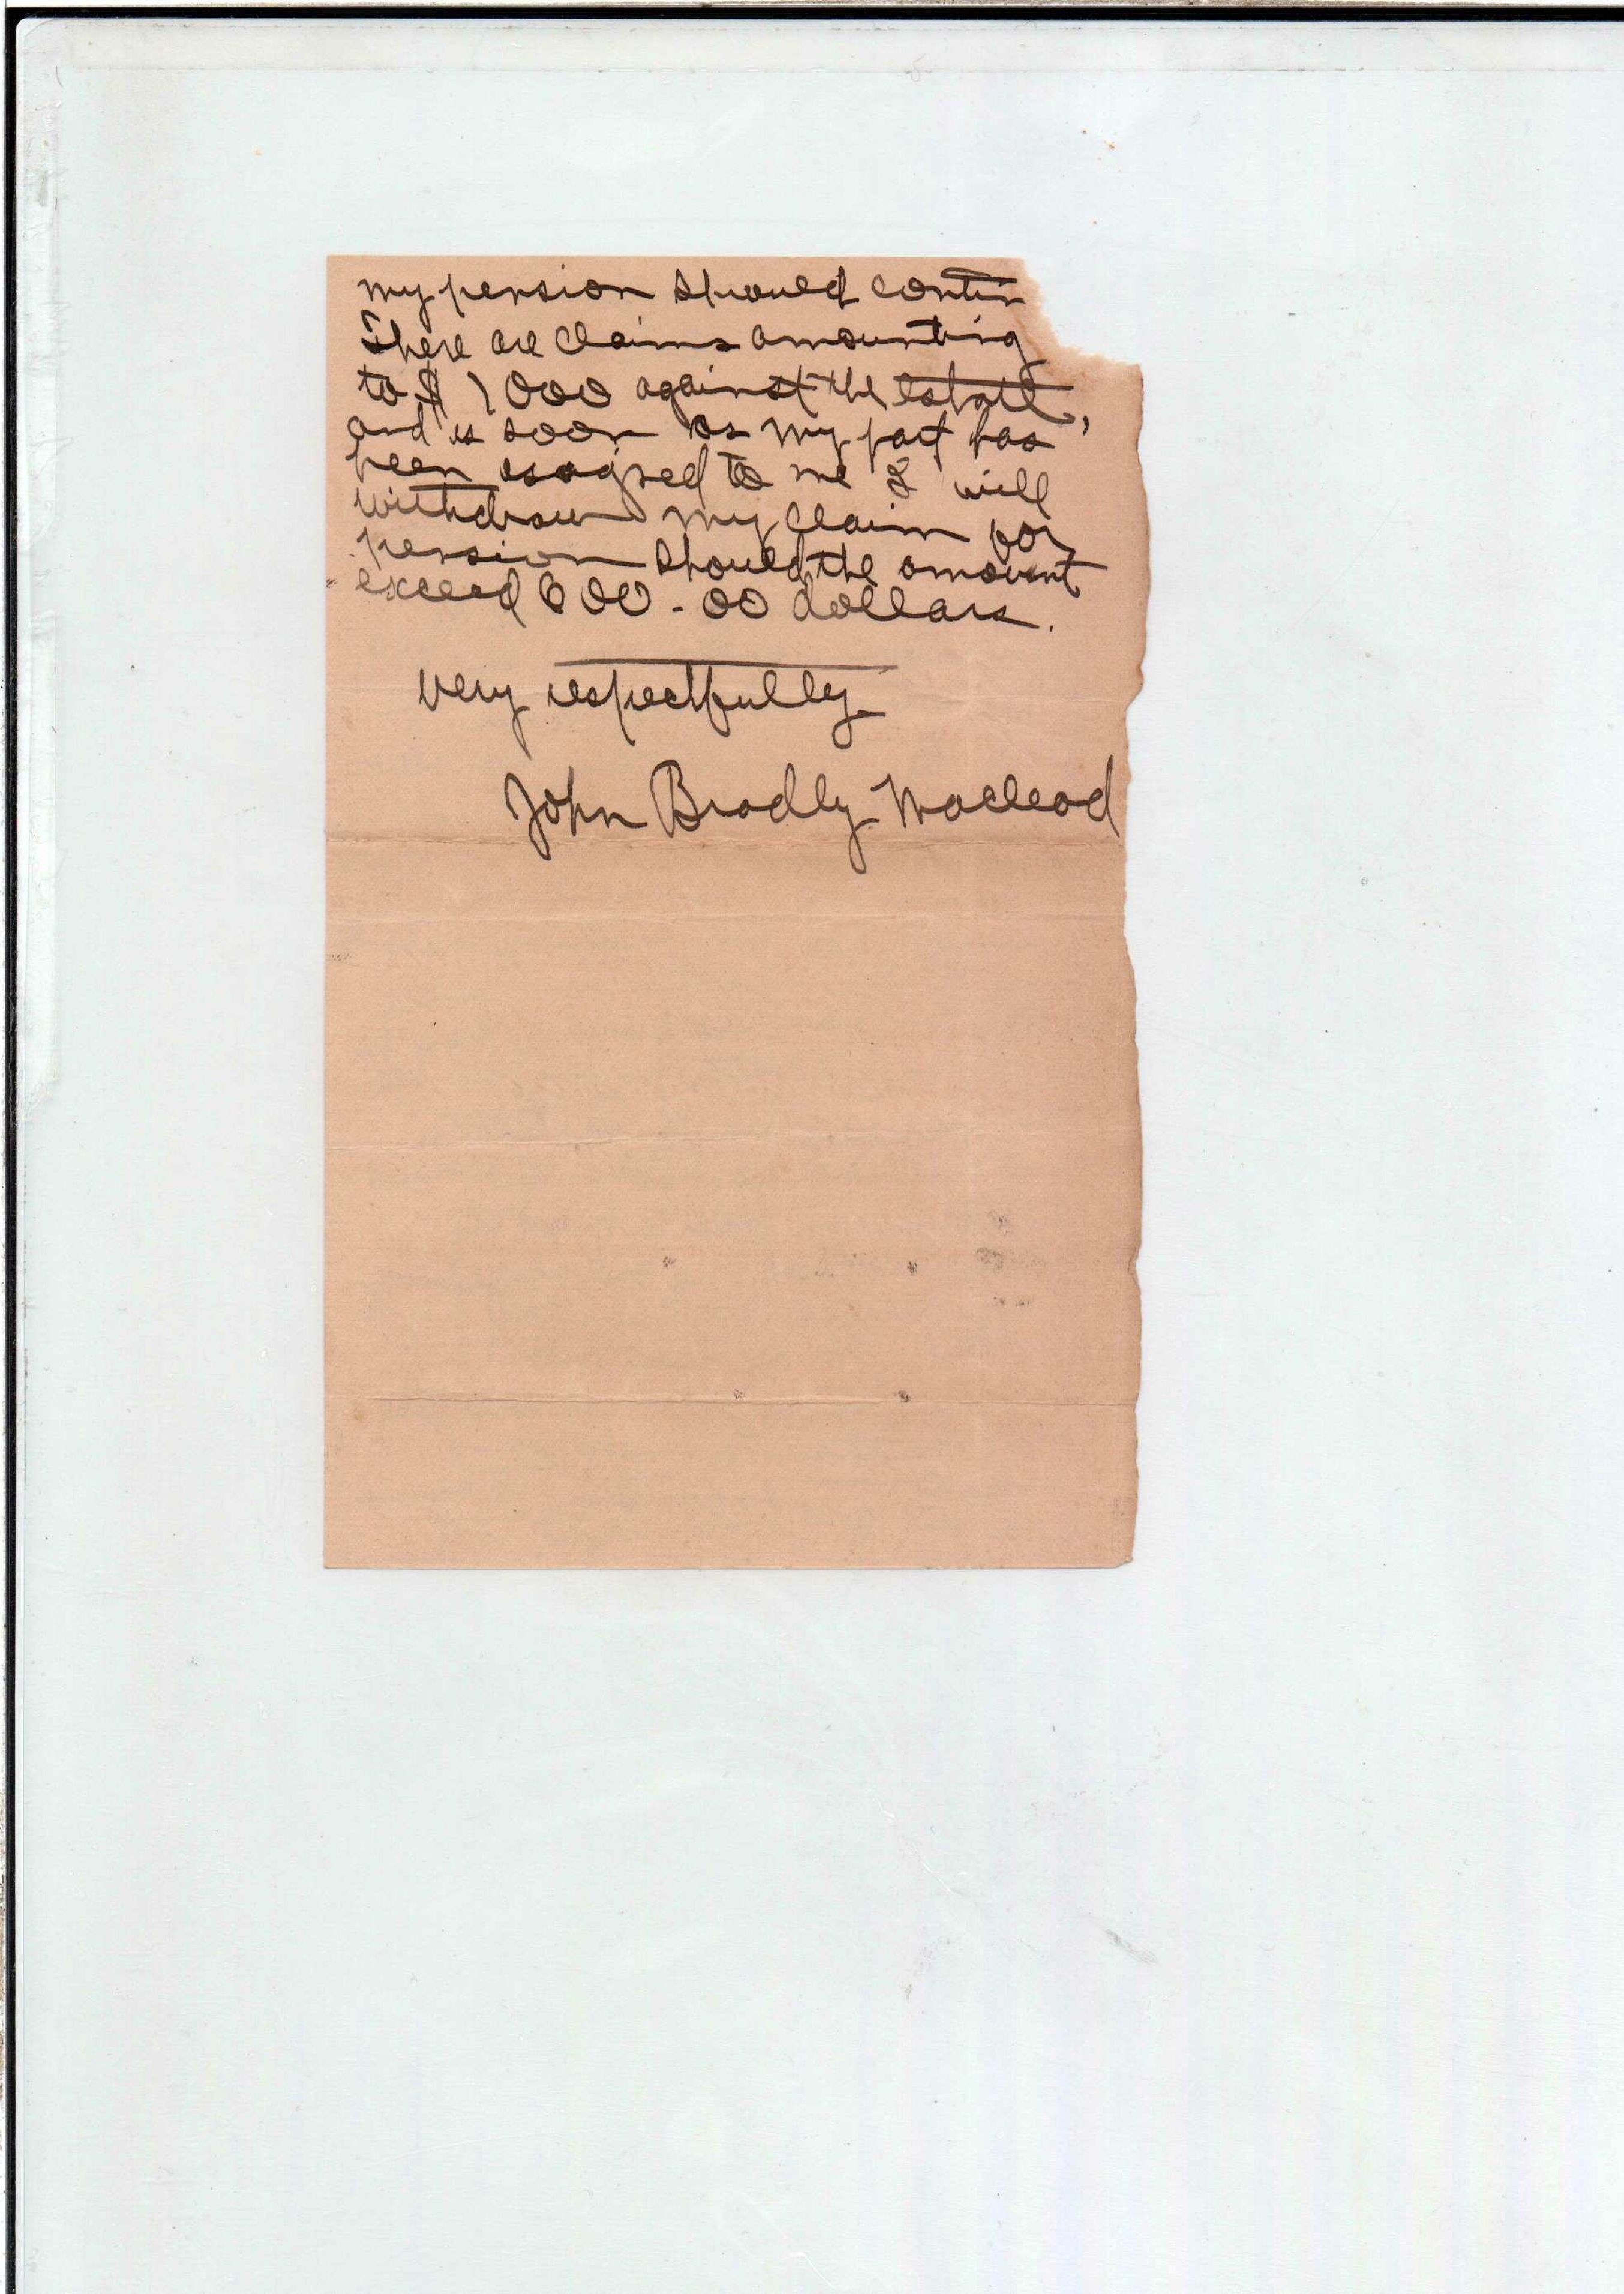 my pension should contin
There are claims amounting
to $ 1000 against the estate,
and as soon as my part has
been assigned to me I will
withdraw my claim for
pension should the amount
exceed 600-00 dollars.
Very respectfully
John Bradly Macleod